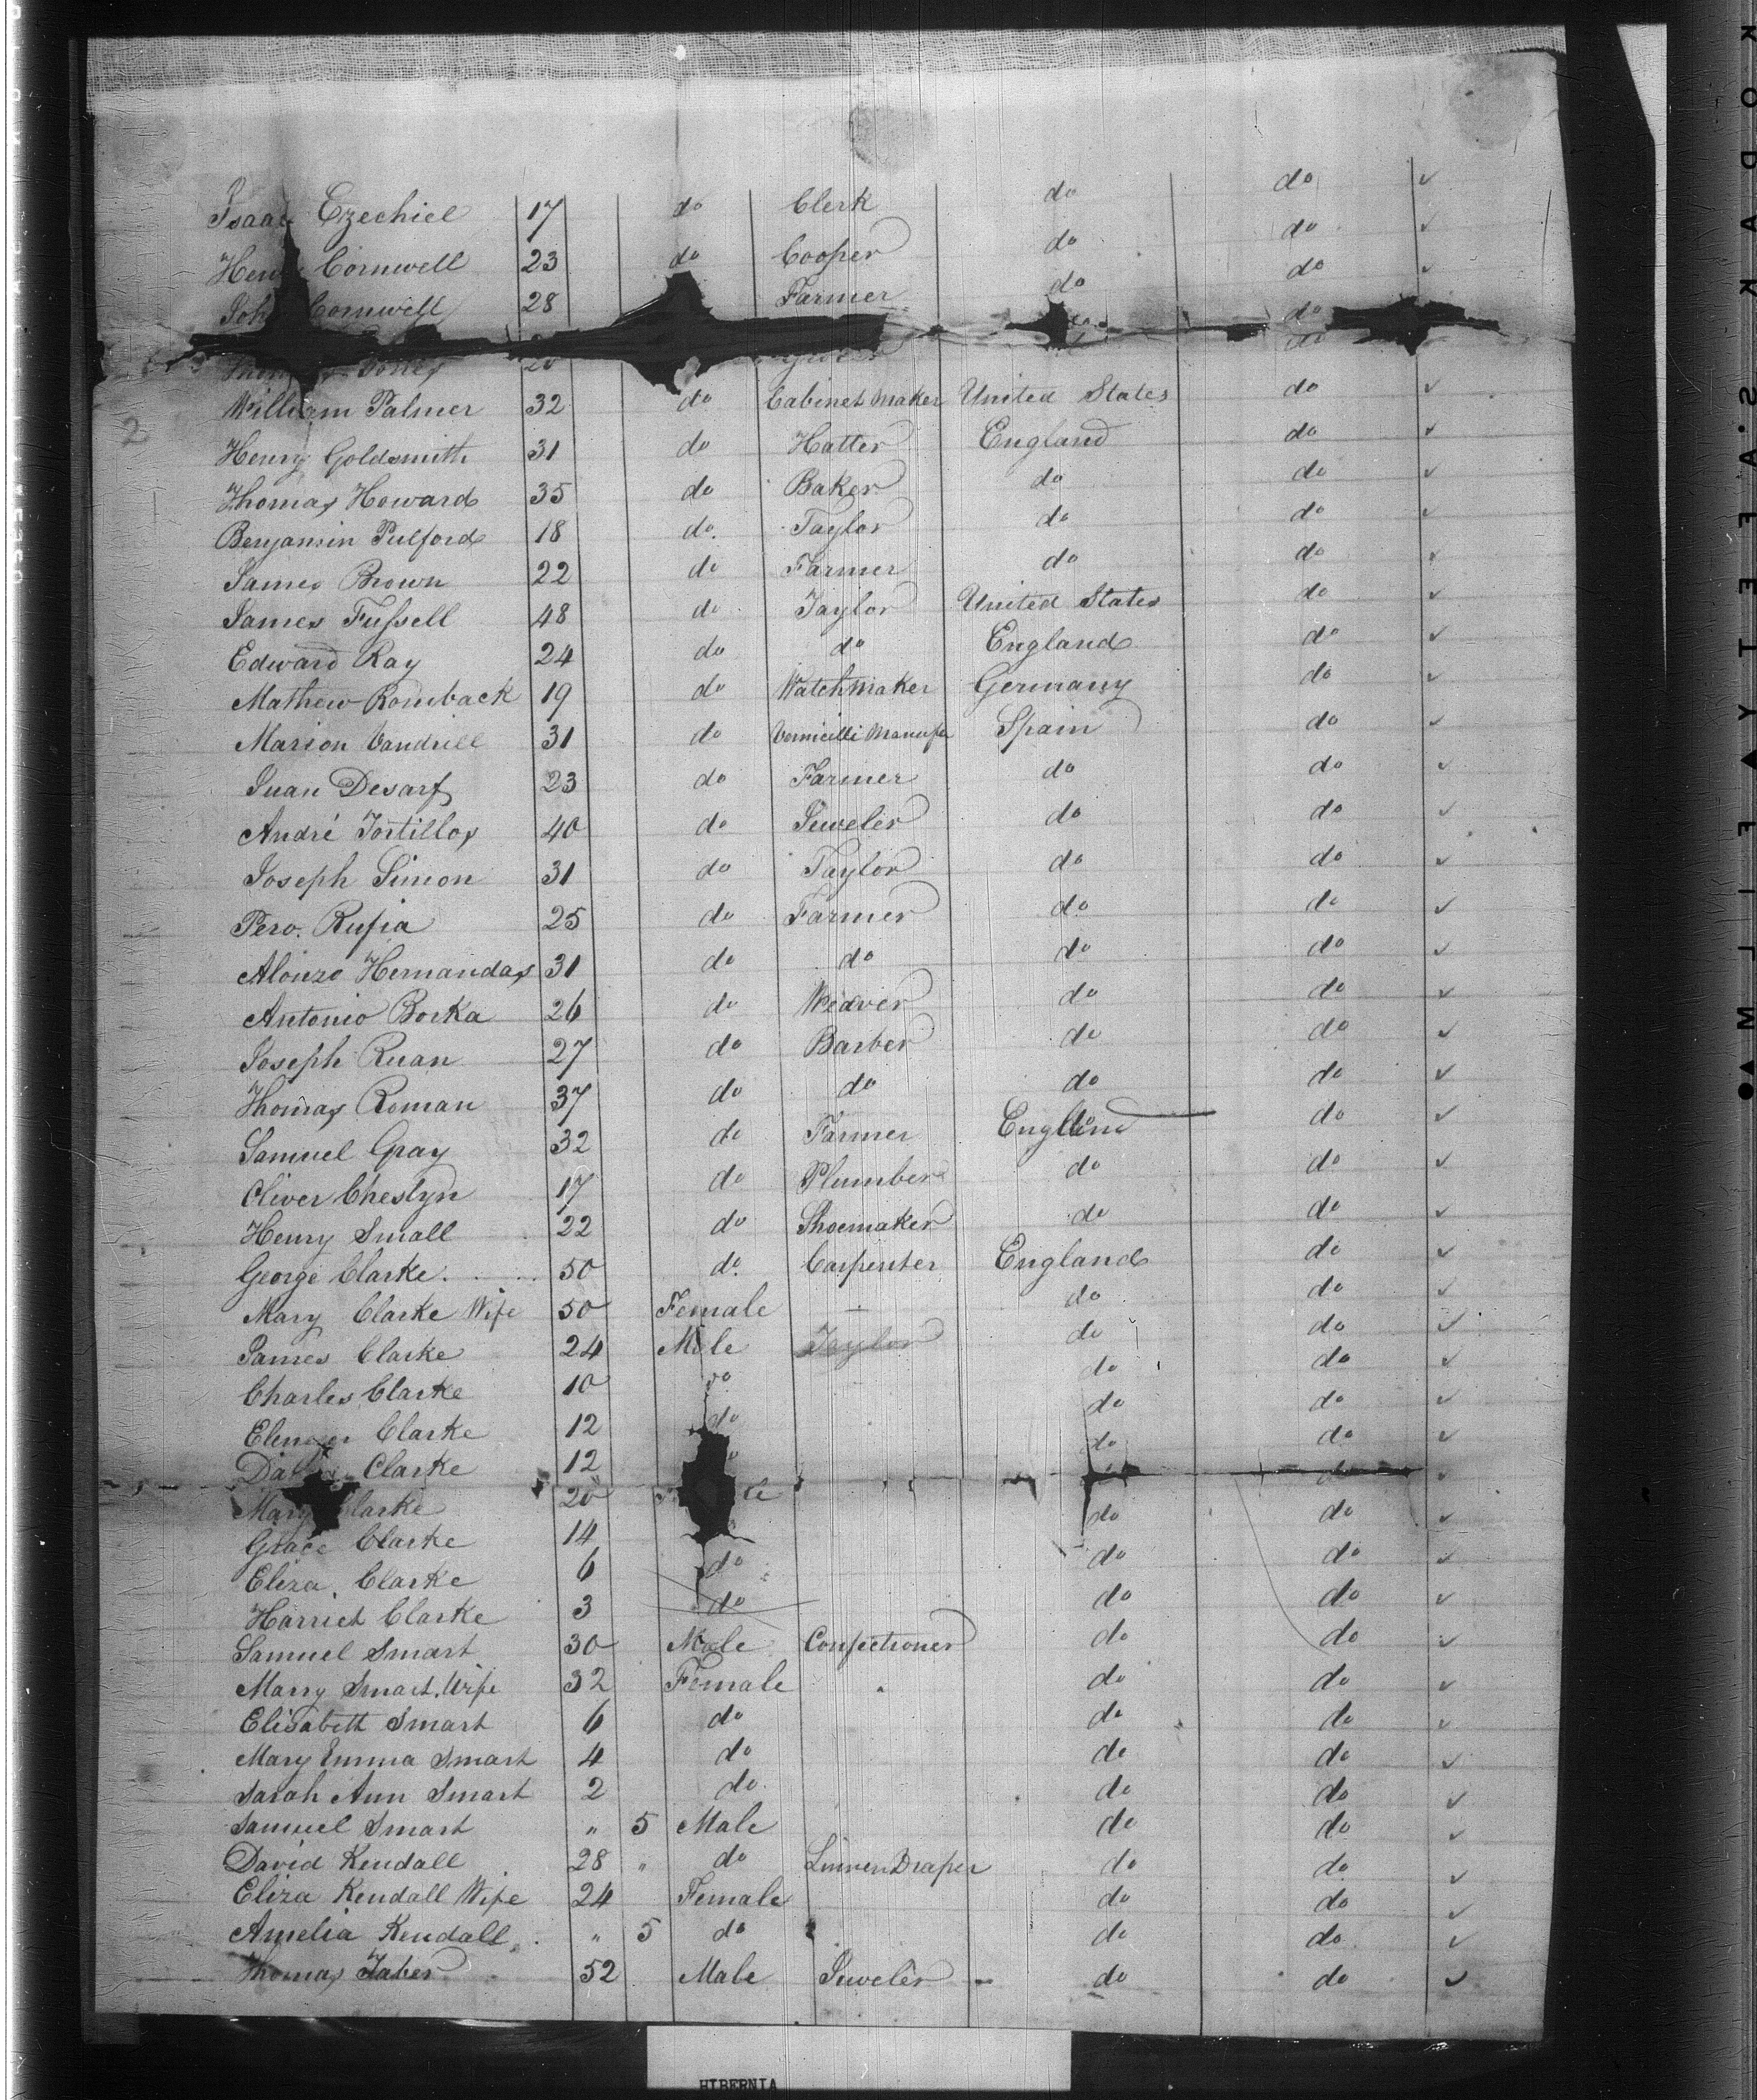 Isaac Ezechiel 17 do Clerk do do ✓
Henry Cornwell 23 do Cooper do do ✓
John Cornwell 28 Farmer do do ✓
do do
Thomas 20 ✓
William Palmer 32 do Cabinet Maker United States do ✓
Henry Goldsmith 31 do Hatter England do ✓
Thomas Howard 35 do Baker do do ✓
Benjamin Pulford 18 do. Taylor do do ✓
James Brown 22 do Farmer do do ✓
James Fussell 48 do Taylor United States do ✓
Edward Ray 24 do do England do ✓
Mathew Romback 19 do Watchmaker Germany do ✓
Marion Vandrill 31 do Vermicilli Manufr Spain do ✓
Juan Desarf 23 do Farmer do do ✓
André Tortillos 40 do Jeweler do do ✓
Joseph Simon 31 do Taylor do do ✓
Pero. Rufia 25 do Farmer do do ✓
Alonzo Hernandas 31 do do do do ✓
Antonio Borka 26 do Weaver do do ✓
Joseph Ruan 27 do Barber do do ✓
Thomas Roman 37 do do do do ✓
Samuel Gray 32 do Farmer England do ✓
Oliver Cheslyn 17 do Plumber do do ✓
Henry Small 22 do Shoemaker do do ✓
George Clarke 50 do. Carpenter England do ✓
Mary Clarke Wife 50 Female — do do ✓
James Clarke 24 Male Taylor do do ✓
Charles Clarke 10 do do do ✓
Clarke 12 do do do ✓
Clarke 12 do do ✓
Mary Clarke 20 do ✓
Grace Clarke 14 do do ✓
Eliza Clarke 6 do do do ✓
Harriet Clarke 3 do do do ✓
Samuel Smart 30 Male Confectioner do do ✓
Marry Smart, Wife 32 Female do do ✓
Elisabeth Smart 6 do do do ✓
Mary Emma Smart 4 do do do ✓
Sarah Ann Smart 2 do do do ✓
Samuel Smart " 5 Male do do ✓
David Kendall 28 " do Linnen Draper do do ✓
Eliza Kendall Wife 24 Female do do ✓
Amelia Kendall " 5 do do do ✓
Thomas Taber 52 Male Jeweler do do ✓
2
HIBERNIA
KODAK SAFETY FILM